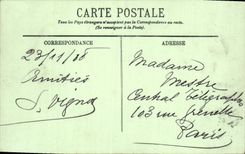 CARTE POSTALE
Tous les Pays étrangers n'acceptent pas la Correspondance au recto.
(Se renseigner à la Poste)
CORRESPONDANCE
ADRESSE
23/11/08
Amitiés
Madame
Mestre
Central Télégraphe
103 rue Grenelle
Paris